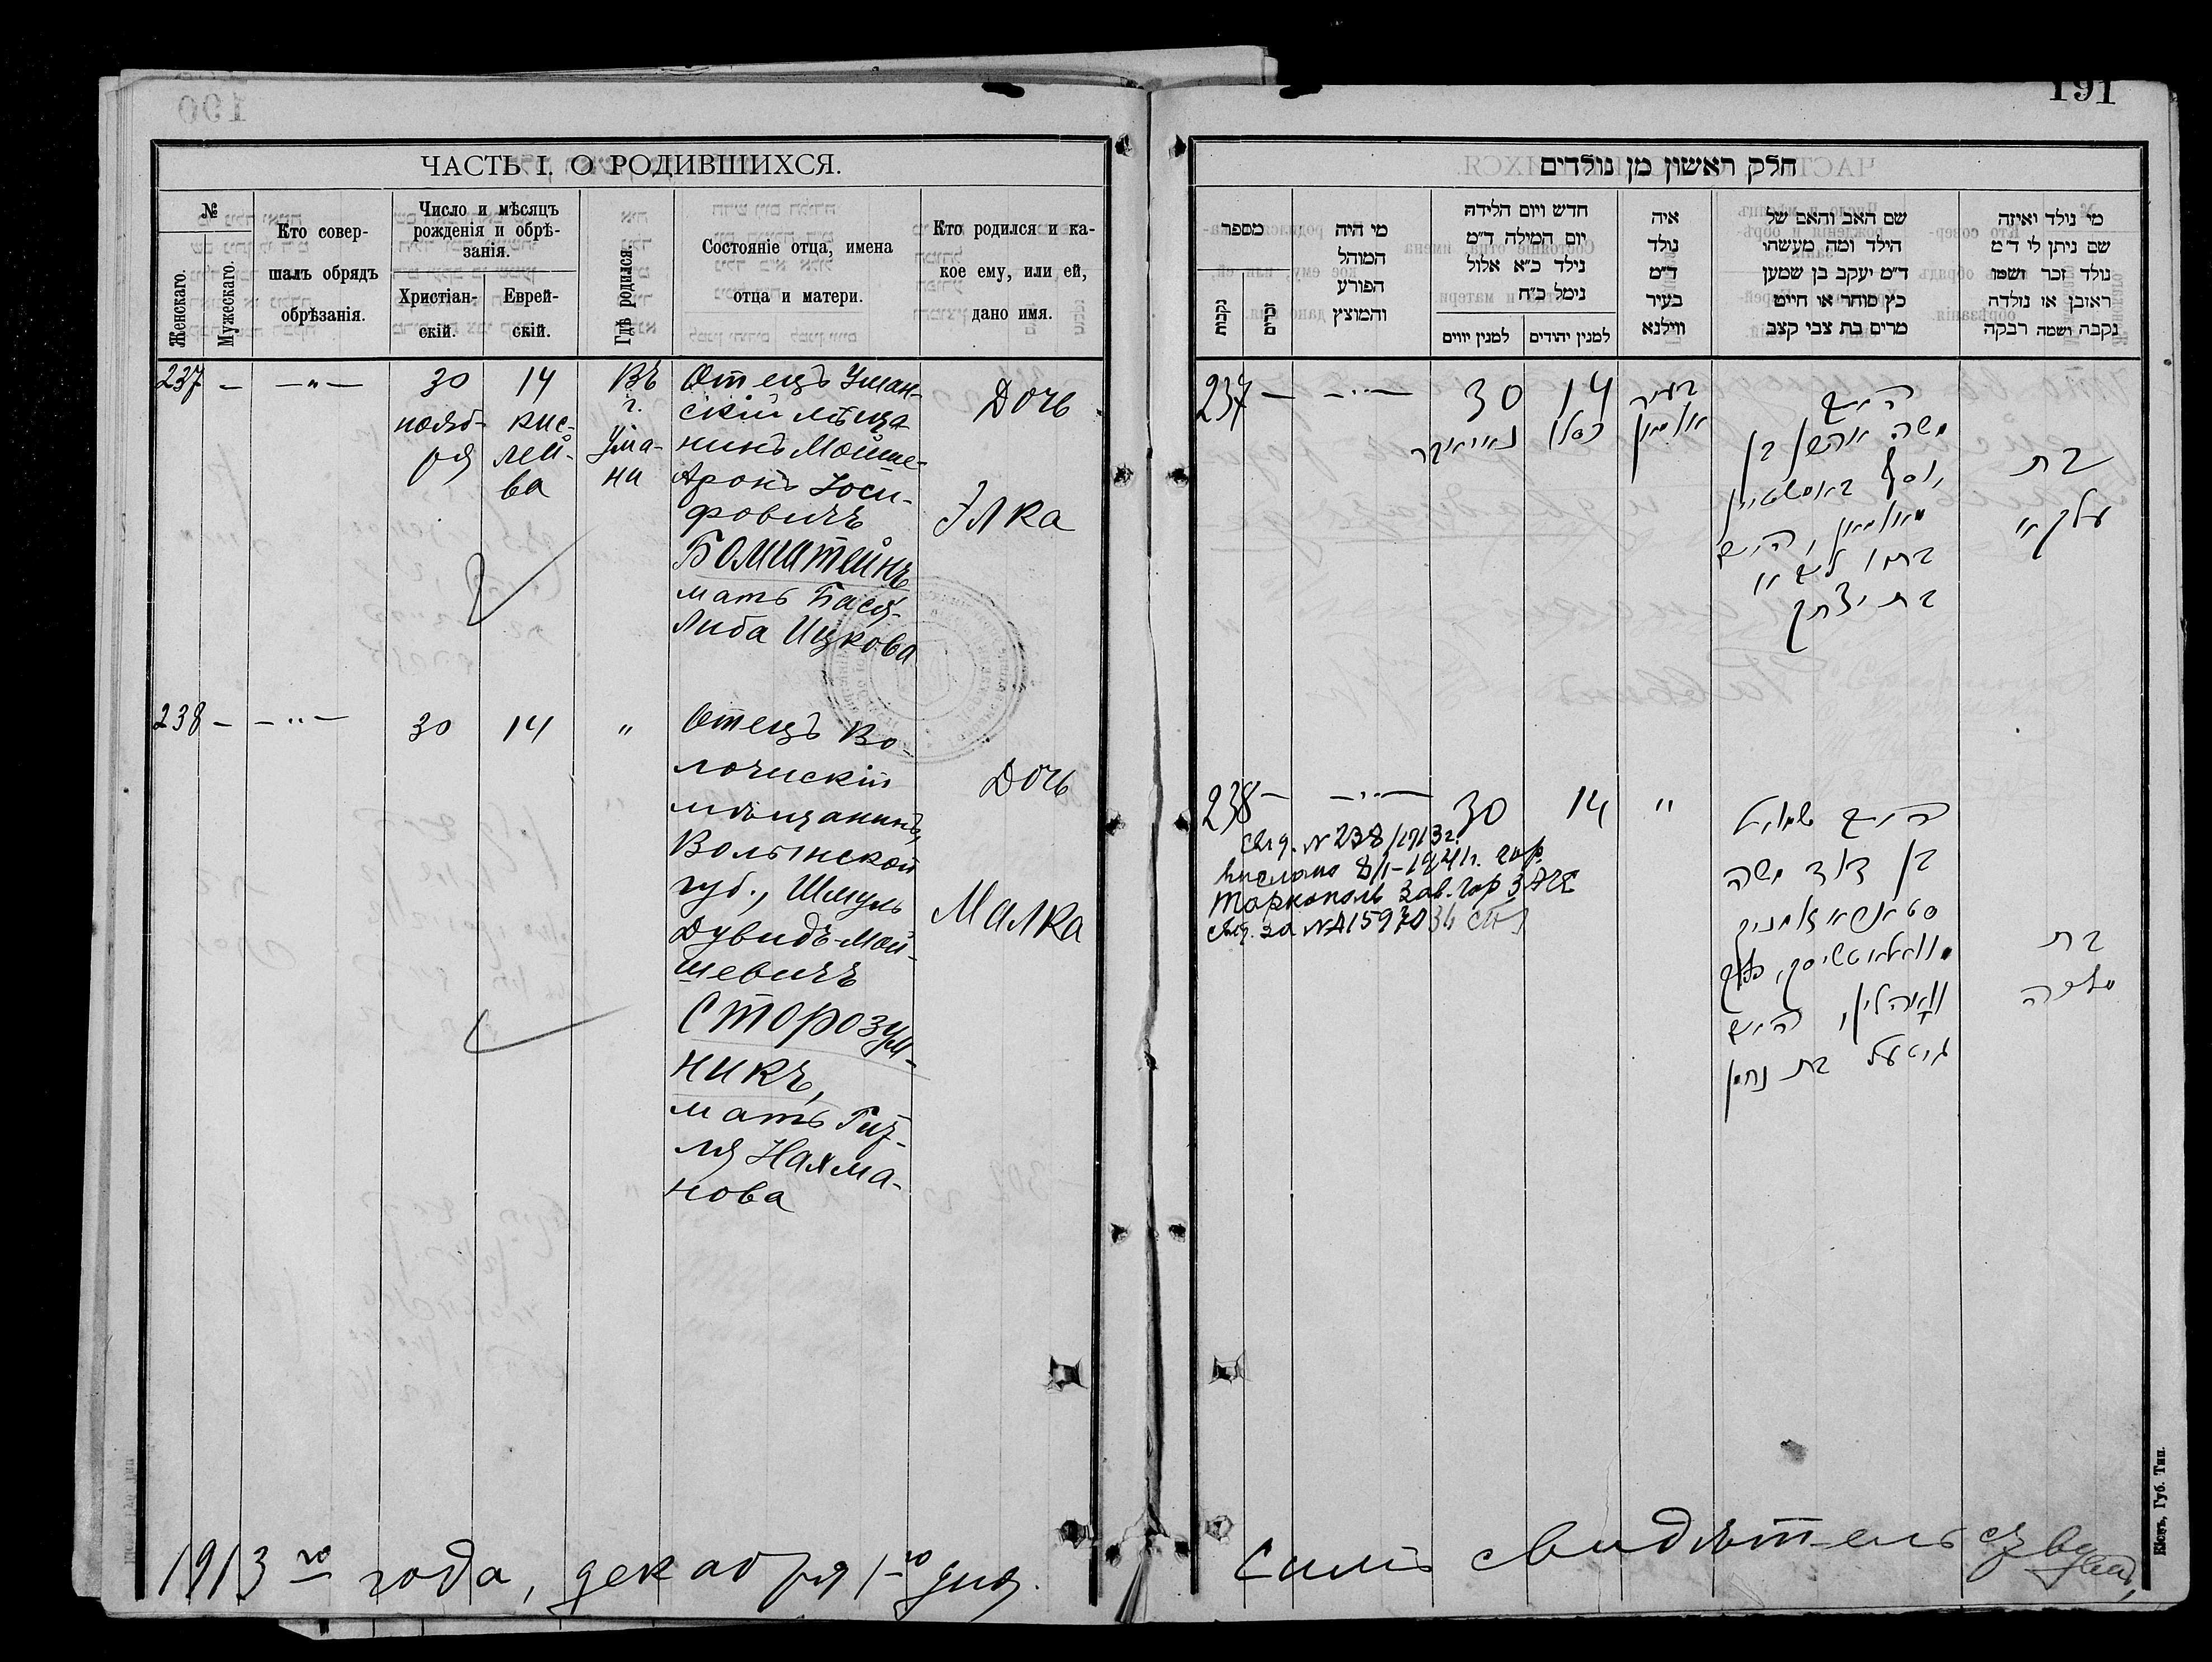 191
ЧАСТЬ I. О РОДИВШИХСЯ.
№
Женскаго.
Мужескаго.
Кто совер-
шалъ обрядъ
обрѣзанія.
Число и мѣсяцъ
рожденія и обрѣ-
занія.
Христіан-
скій.
Еврей-
скій.
Гдѣ родился.
Состояніе отца, имена
отца и матери.
Кто родился и ка-
кое ему, или ей,
дано имя.
237 — —"—
30
нояб-
ря
14
кис-
лей-
ва
Въ
г.
Ума-
ни
Отецъ Уман-
скій мѣща
нинъ Мойше-
Аронъ Іоси-
фовичъ
Бомштейнъ
мать Бася-
Либа Ицкова
Дочь
Элка
238 — —"— 30 14 "
Отецъ Во-
лочискій
мѣщанинъ,
Волынской
губ., Шмуль
Дувидъ-Мой-
шевичъ
Сторозум-
никъ,
мать Гит-
ля Нахма-
нова
Дочь
Малка
1913 го года, декабря 1 го дня.
חלק ראשון מן נולדים
מספר
נקבות
זכרים
מי היה
המוהל
הפורע
והמוצץ
חדש ויום הלידה
יום המילה ד״מ
נילד כ״א אלול
נימל כ״ח
למנין יווים
למנין יהודים
איה
נולד
ד״מ
בעיר
ווילנא
שם האב והאם של
הילד ומה מעשהו
ד״מ יעקב בן שמען
כץ סוחר או חייט
מרים בת צבי קצב
מי נולד ואיזה
שם ניתן לו ד״מ
נולד זכר ושמו
ראובן או נולדה
נקבה ושמה רבקה
237 — —"—
30
נאיאבר
14
כסלו
בעיר
אומאן
משה אהרן בן
יוסף
בת יצחק
בת
עלקא
238 — —"— 30 14 "
Свид. № 238/1913г.
Тарнополь
בן דוד משה
גיטעל בת נחמן
בת
מלכה
Симъ свидѣтельству
Кіевъ, Губ. Тип.